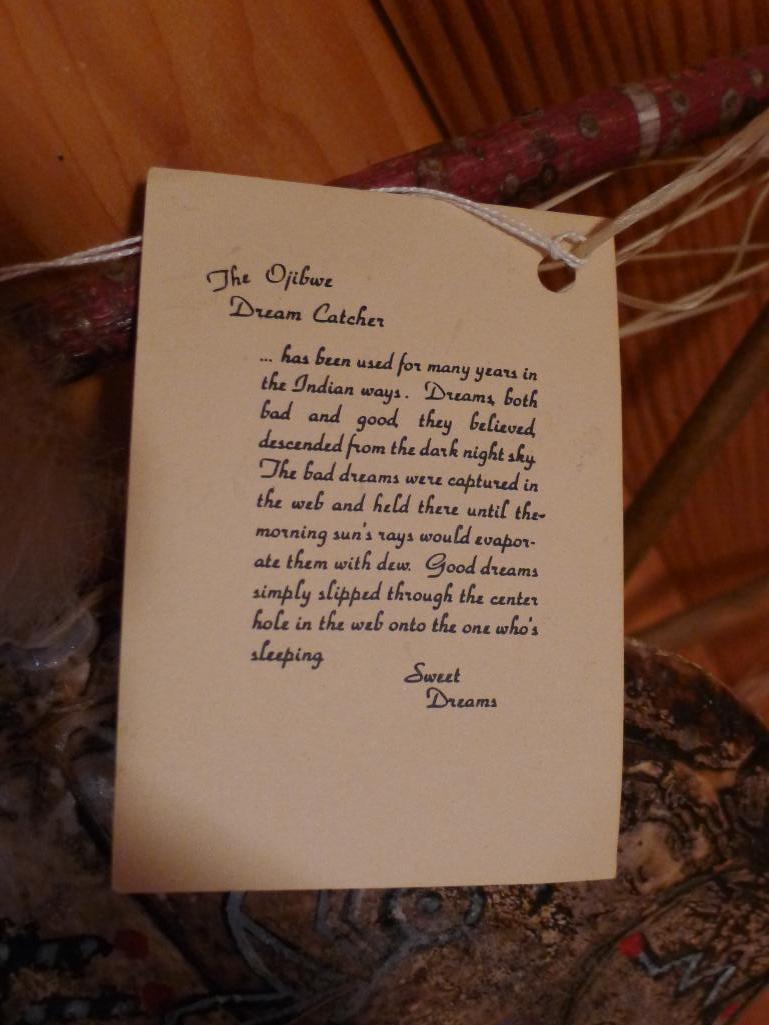 The Ojibwe
Dream Catcher
... has been used for many years in
the Indian ways. Dreams, both
bad and good, they believed,
descended from the dark night sky.
The bad dreams were captured in
the web and held there until the
morning sun's rays would evapor-
ate them with dew. Good dreams
simply slipped through the center
hole in the web onto the one who's
sleeping.
Sweet
Dreams